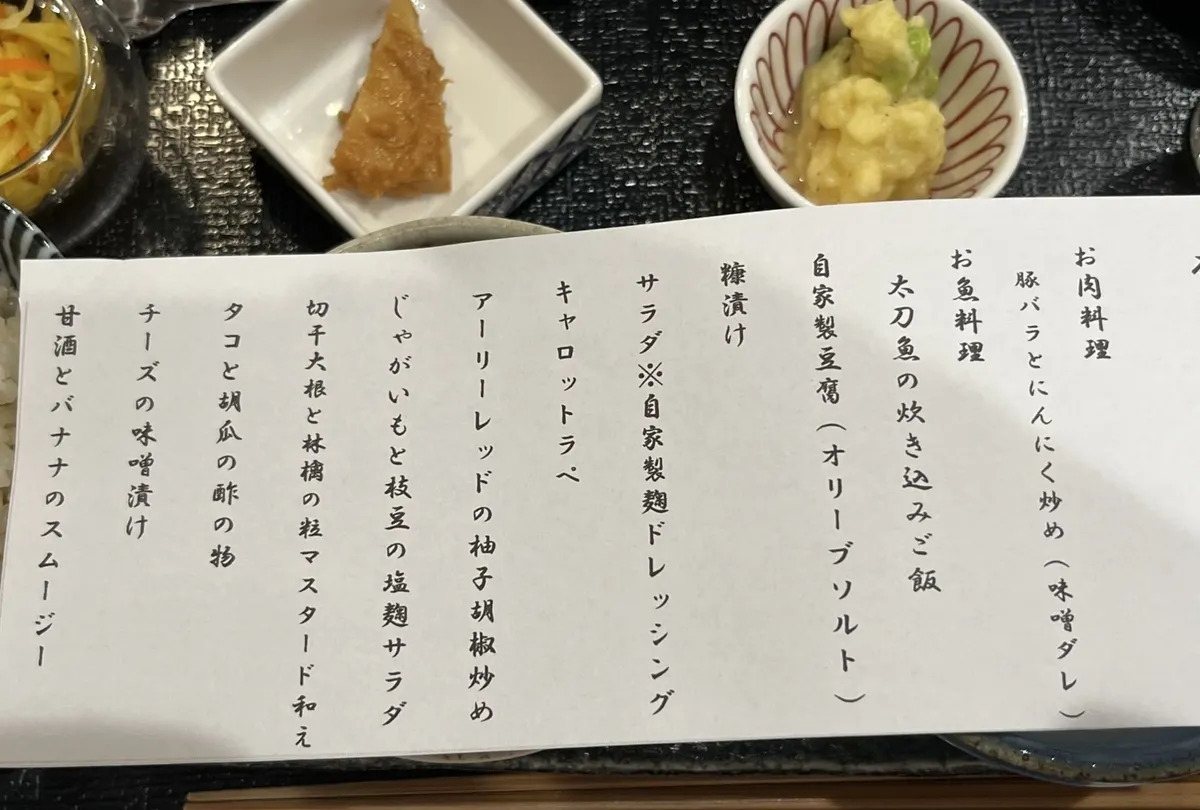 お肉料理
豚バラとにんにく炒め（味噌ダレ）
お魚料理
太刀魚の炊き込みご飯
自家製豆腐（オリーブソルト）
糠漬け
サラダ※自家製麹ドレッシング
キャロットラペ
アーリーレッドの柚子胡椒炒め
じゃがいもと枝豆の塩麹サラダ
切干大根と林檎の粒マスタード和え
タコと胡瓜の酢の物
チーズの味噌漬け
甘酒とバナナのスムージー